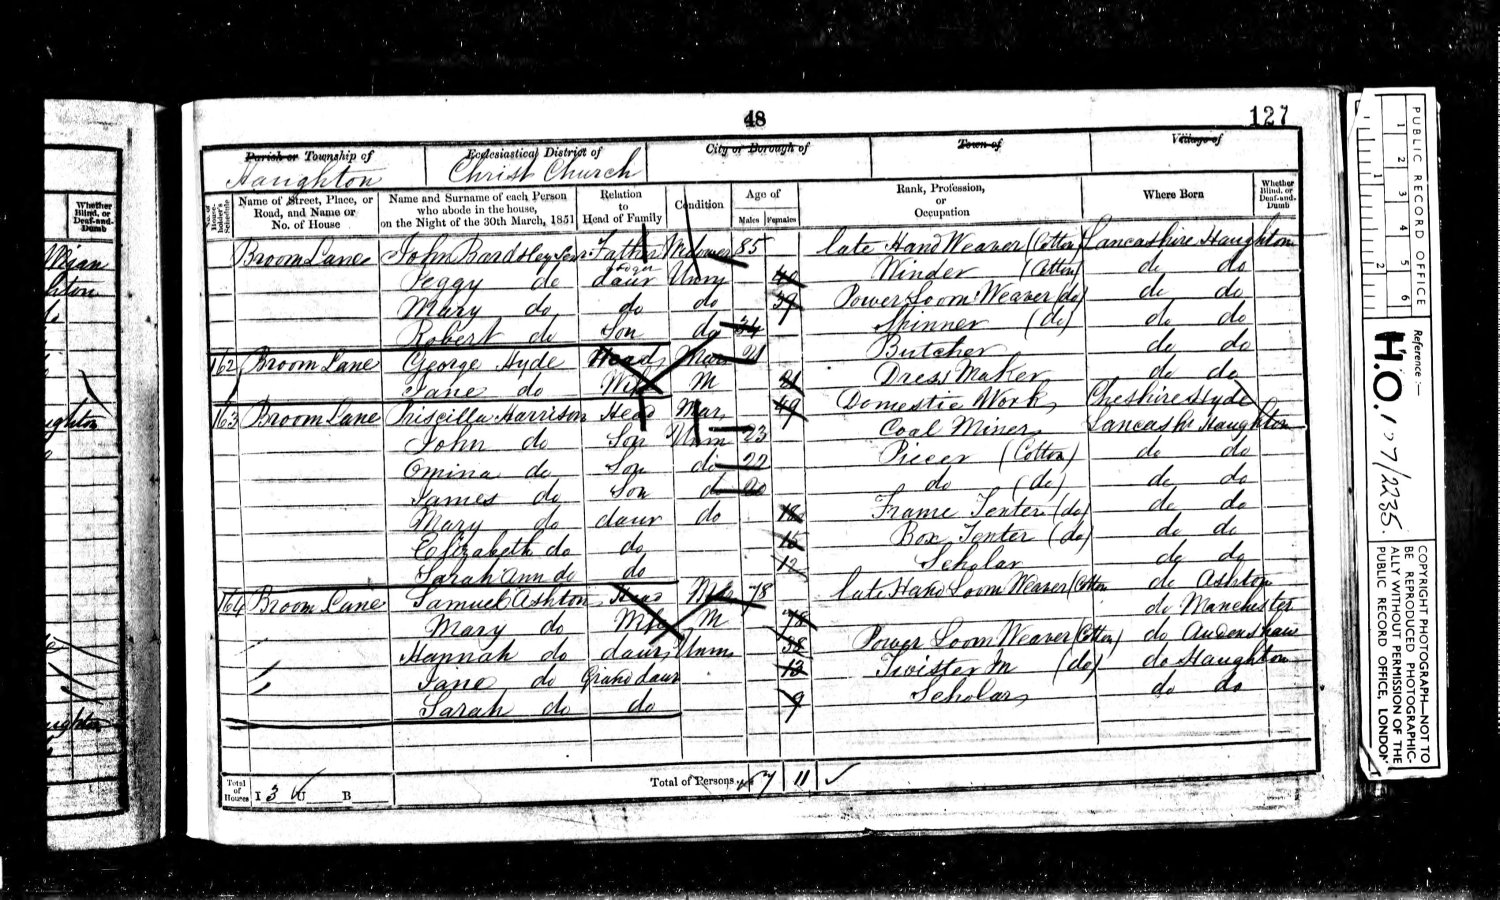 48
127
Parish or Township of
Haughton
Ecclesiastical District of
Christ Church
City or Borough of
Town of
Village of
No. of House-holder's Schedule
Name of Street, Place, or Road, and Name or No. of House
Name and Surname of each Person who abode in the house, on the Night of the 30th March, 1851
Relation to Head of Family
Condition
Age of
Males Females
Rank, Profession, or Occupation
Where Born
Whether Blind, or Deaf-and-Dumb
Broom Lane John Bardsley Senr. Father Widower 85 late Hand Weaver (Cotton) Lancashire Haughton
Peggy do daur Unm 40 Winder (Cotton) do do
Mary do do do 39 Power Loom Weaver (do) do do
Robert do Son do 34 Spinner (do) do do
162 Broom Lane George Hyde Head Mar 21 Butcher do do
Jane do Wife M 21 Dress Maker do do
163 Broom Lane Priscilla Harrison Head Mar 49 Domestic Work Cheshire Hyde
John do Son Unm 23 Coal Miner Lancash Haughton
Omina do Son do 22 Piecer (Cotton) do do
James do Son do 20 do (do) do do
Mary do daur do 18 Frame Tenter (do) do do
Elizabeth do do 15 Box Tenter (do) do do
Sarah Ann do do 12 Scholar do do
164 Broom Lane Samuel Ashton Head 78 late Hand Loom Weaver (Cotton do Ashton
Mary do Wife M 78 do Manchester
Hannah do daur Unm 38 Power Loom Weaver (Cotton) do Audenshaw
Jane do Grand daur 13 Twister In (do) do Haughton
Sarah do do 9 Scholar do do
Total of Houses I 3 U B
Total of Persons 7 11
Whether Blind, or Deaf-and-Dumb
PUBLIC RECORD OFFICE
1 2 3 4 5 6
1 2
Reference :—
H.O. 107/2235
COPYRIGHT PHOTOGRAPH—NOT TO BE REPRODUCED PHOTOGRAPHIC-ALLY WITHOUT PERMISSION OF THE PUBLIC RECORD OFFICE, LONDON